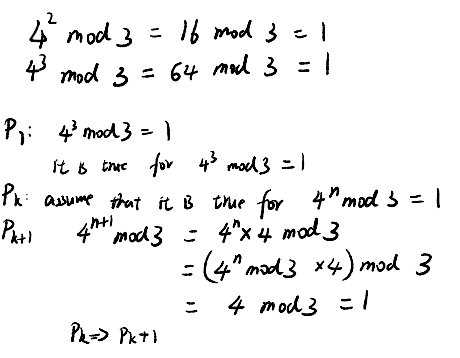 4² mod 3 = 16 mod 3 = 1
4³ mod 3 = 64 mod 3 = 1
P₁: 4³ mod 3 = 1
it is true for 4³ mod 3 = 1
Pₖ: assume that it is true for 4ⁿ mod 3 = 1
Pₖ₊₁ 4ⁿ⁺¹ mod 3 = 4ⁿ × 4 mod 3
= (4ⁿ mod 3 × 4) mod 3
= 4 mod 3 = 1
Pₖ => Pₖ₊₁